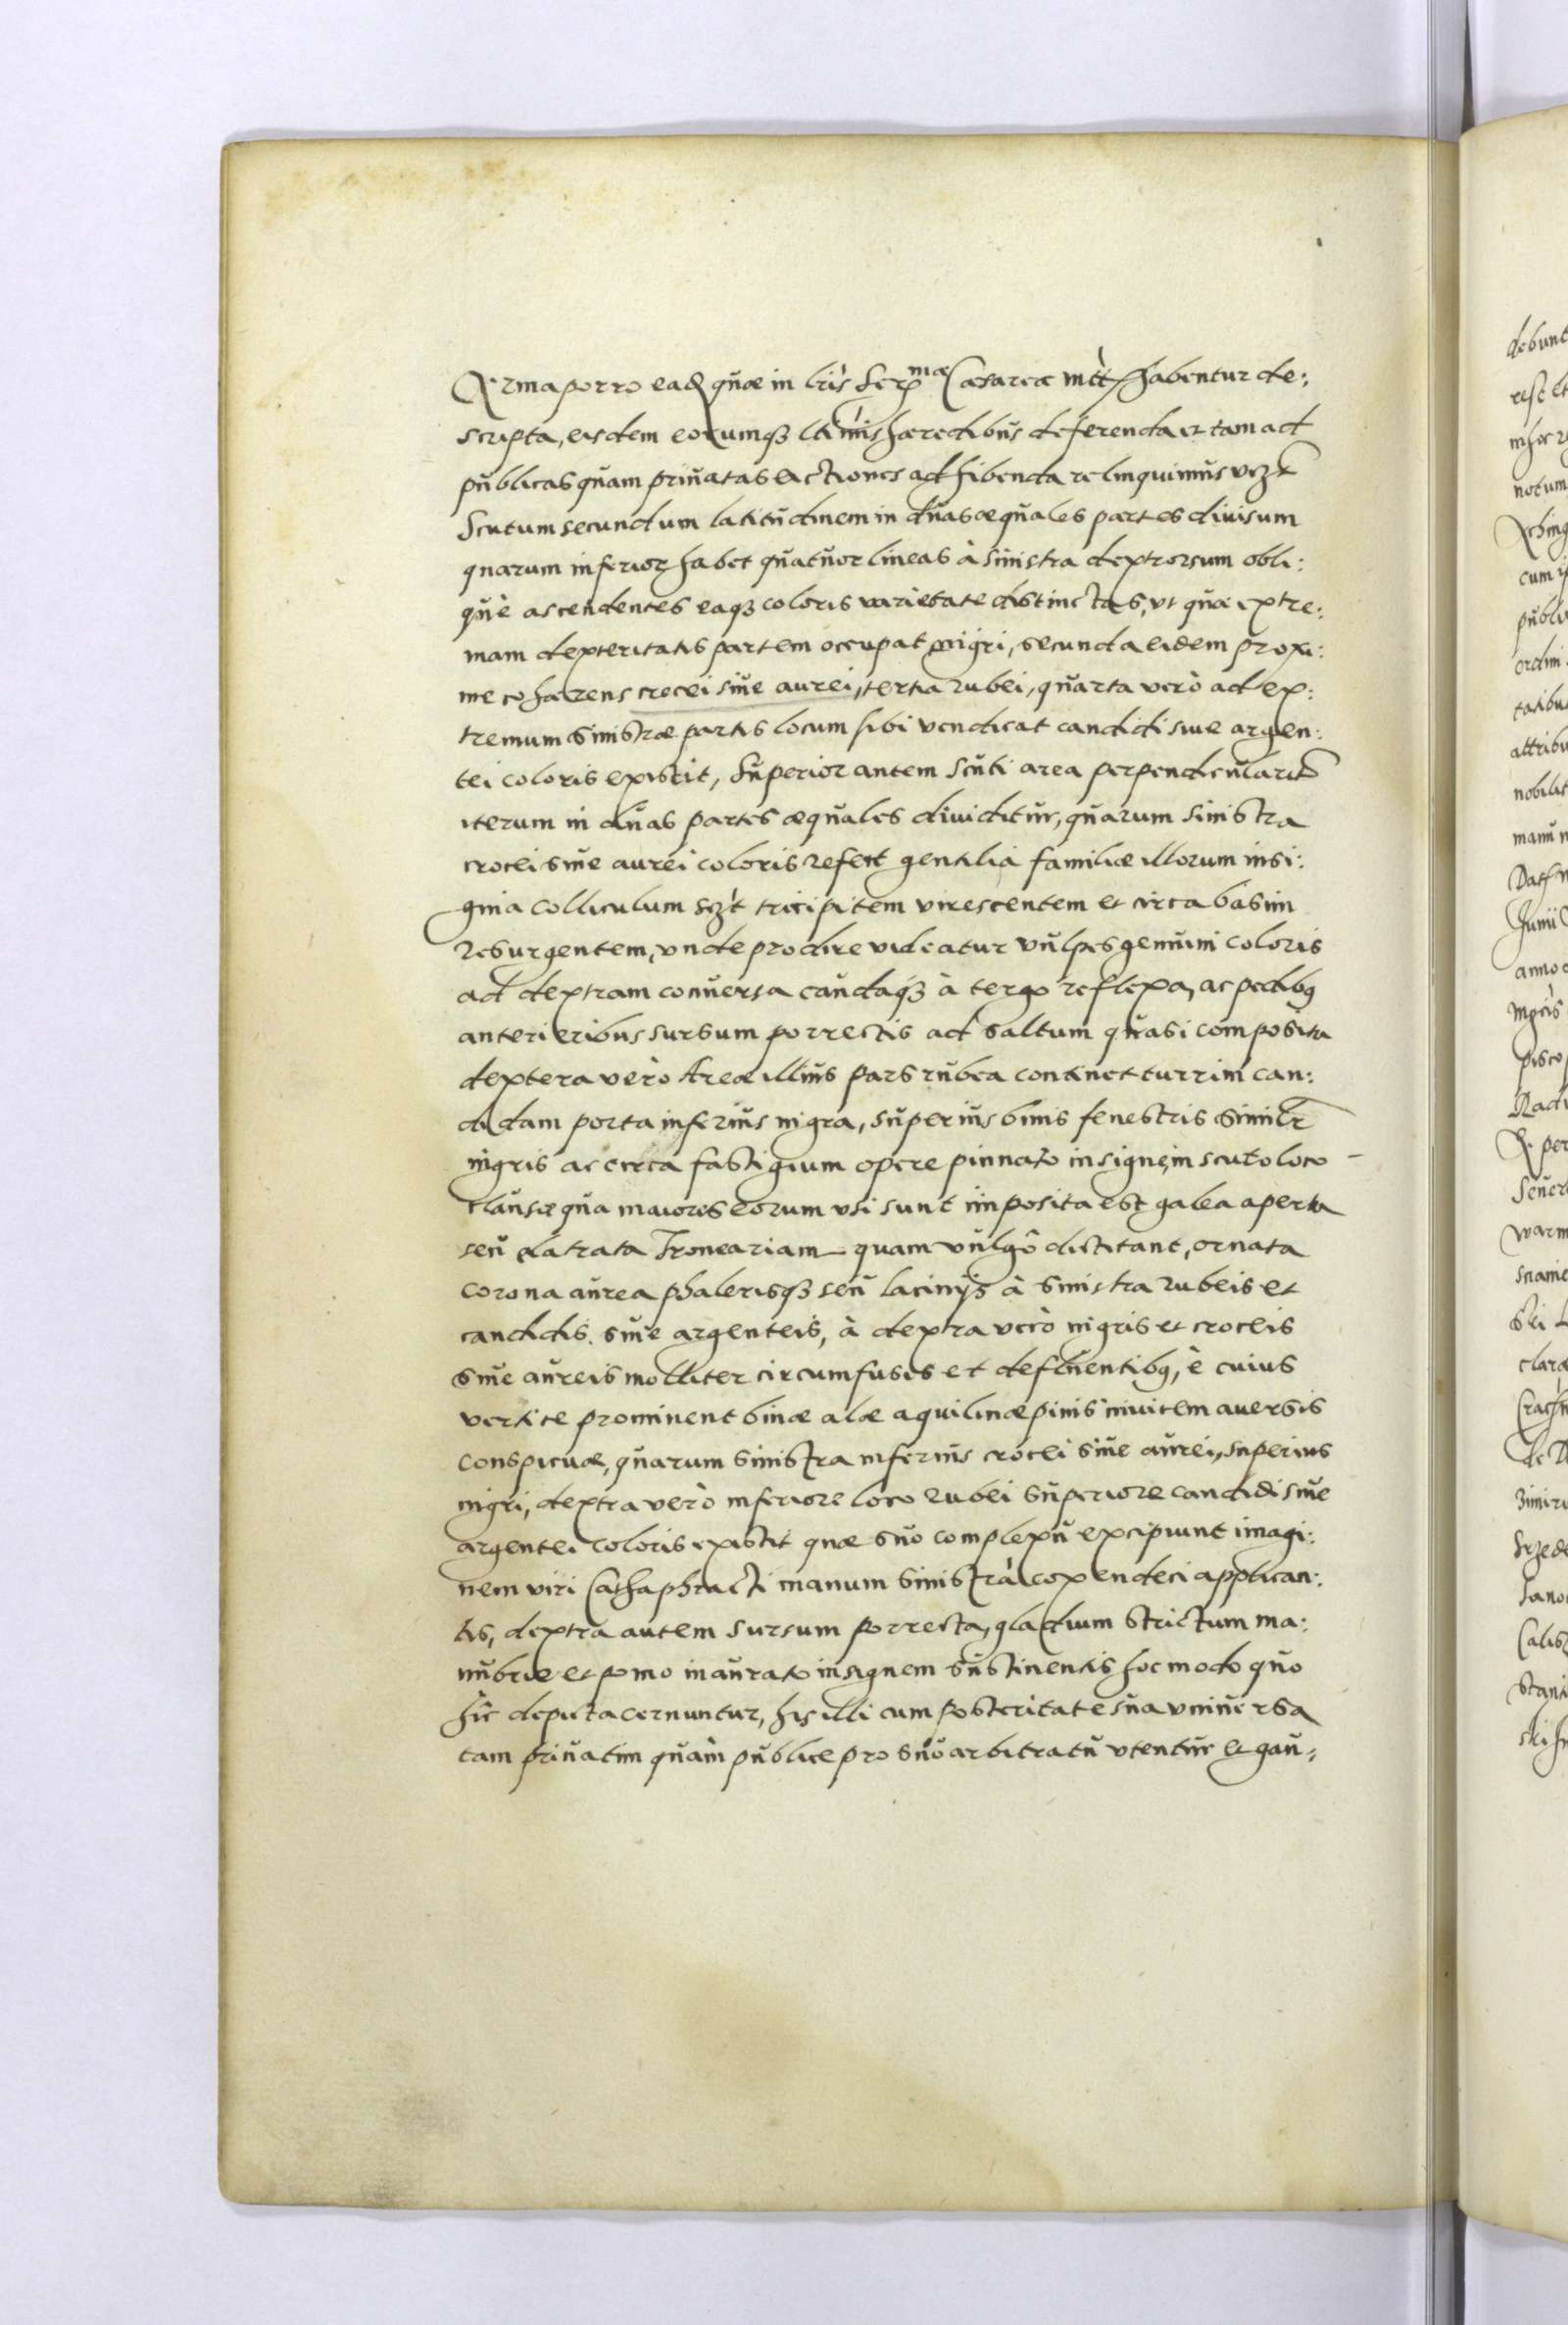 Arma porro ead quæ in lrìs Serᵐᵃᵉ Cæsareæ mtt habentur de:
scripta, eisdem eorumqȝ ltimis hæredibus deferenda et tam ad
publicas quam priuatas actiones adhibenda relinquimus vczt
Scutum secundum latitudinem in duas æquales partes diuisum
quarum inferior habet quatuor lineas à sinistra dextrorsum obli:
què ascendentes eaqȝ coloris varietate distinctas, vt quæ extre:
mam dexteritatis partem occupat nigri, secunda eidem proxi:
me cohærens crocei siue aurei, tertia rubei, quarta verò ad ex:
tremum sinistræ partis locum sibi vendicat candidi siue argen:
tei coloris existit, Superior autem scuti area perpendicularit
iterum in duas partes æquales diuiditur, quarum sinistra
crocei siue aurei coloris refert gentilia familiæ illorum insi:
gnia colliculum sczt tricipitem virescentem et circa basim
resurgentem, vnde prodire videatur vulpes genuini coloris
ad dextram conuersa caudaqȝ à tergo reflexa, ac pedibq
anterieribus sursum porrectis ad saltum quasi composita
dextera verò Areæ illius pars rubea continet turrim can:
didam porta inferius nigra, superius binis fenestris similr
nigris ac circa fastigium opere pinnato insignem, scuto loco
clausæ qua maiores eorum vsi sunt imposita est galea aperta
seu clatrata Troneariam quam vulgò dictitant, ornata
corona aurea phalerisqȝ seu lacinijs à sinistra rubeis et
candidis siue argenteis, à dextra verò nigris et croceis
siue aureis molliter circumfusis et defluentibq, è cuius
vertice prominent binæ alæ aquilinæ pinis inuicem auersis
conspicuæ, quarum sinistra inferius crocei siue aurei, superius
nigri, dextra verò inferiore loco rubei superiore candidi siue
argentei coloris existit quæ suo complexu excipiunt imagi:
nem viri Cathaphracti manum sinistrà coxendeci applican:
tis, dextra autem sursum porrecta, gladium strictum ma:
nubrie et pomo inaurato insignem sustinentis hoc modo quo
hîc depicta cernuntur, his illi cum posteritate sua vniuersa
tam priuatim quàm publice pro suo arbitratu vtentur et gau:
debunt
notum
cum
publi
ordini
tatibu
attribu
nobilit
Junii
anno
clara
de